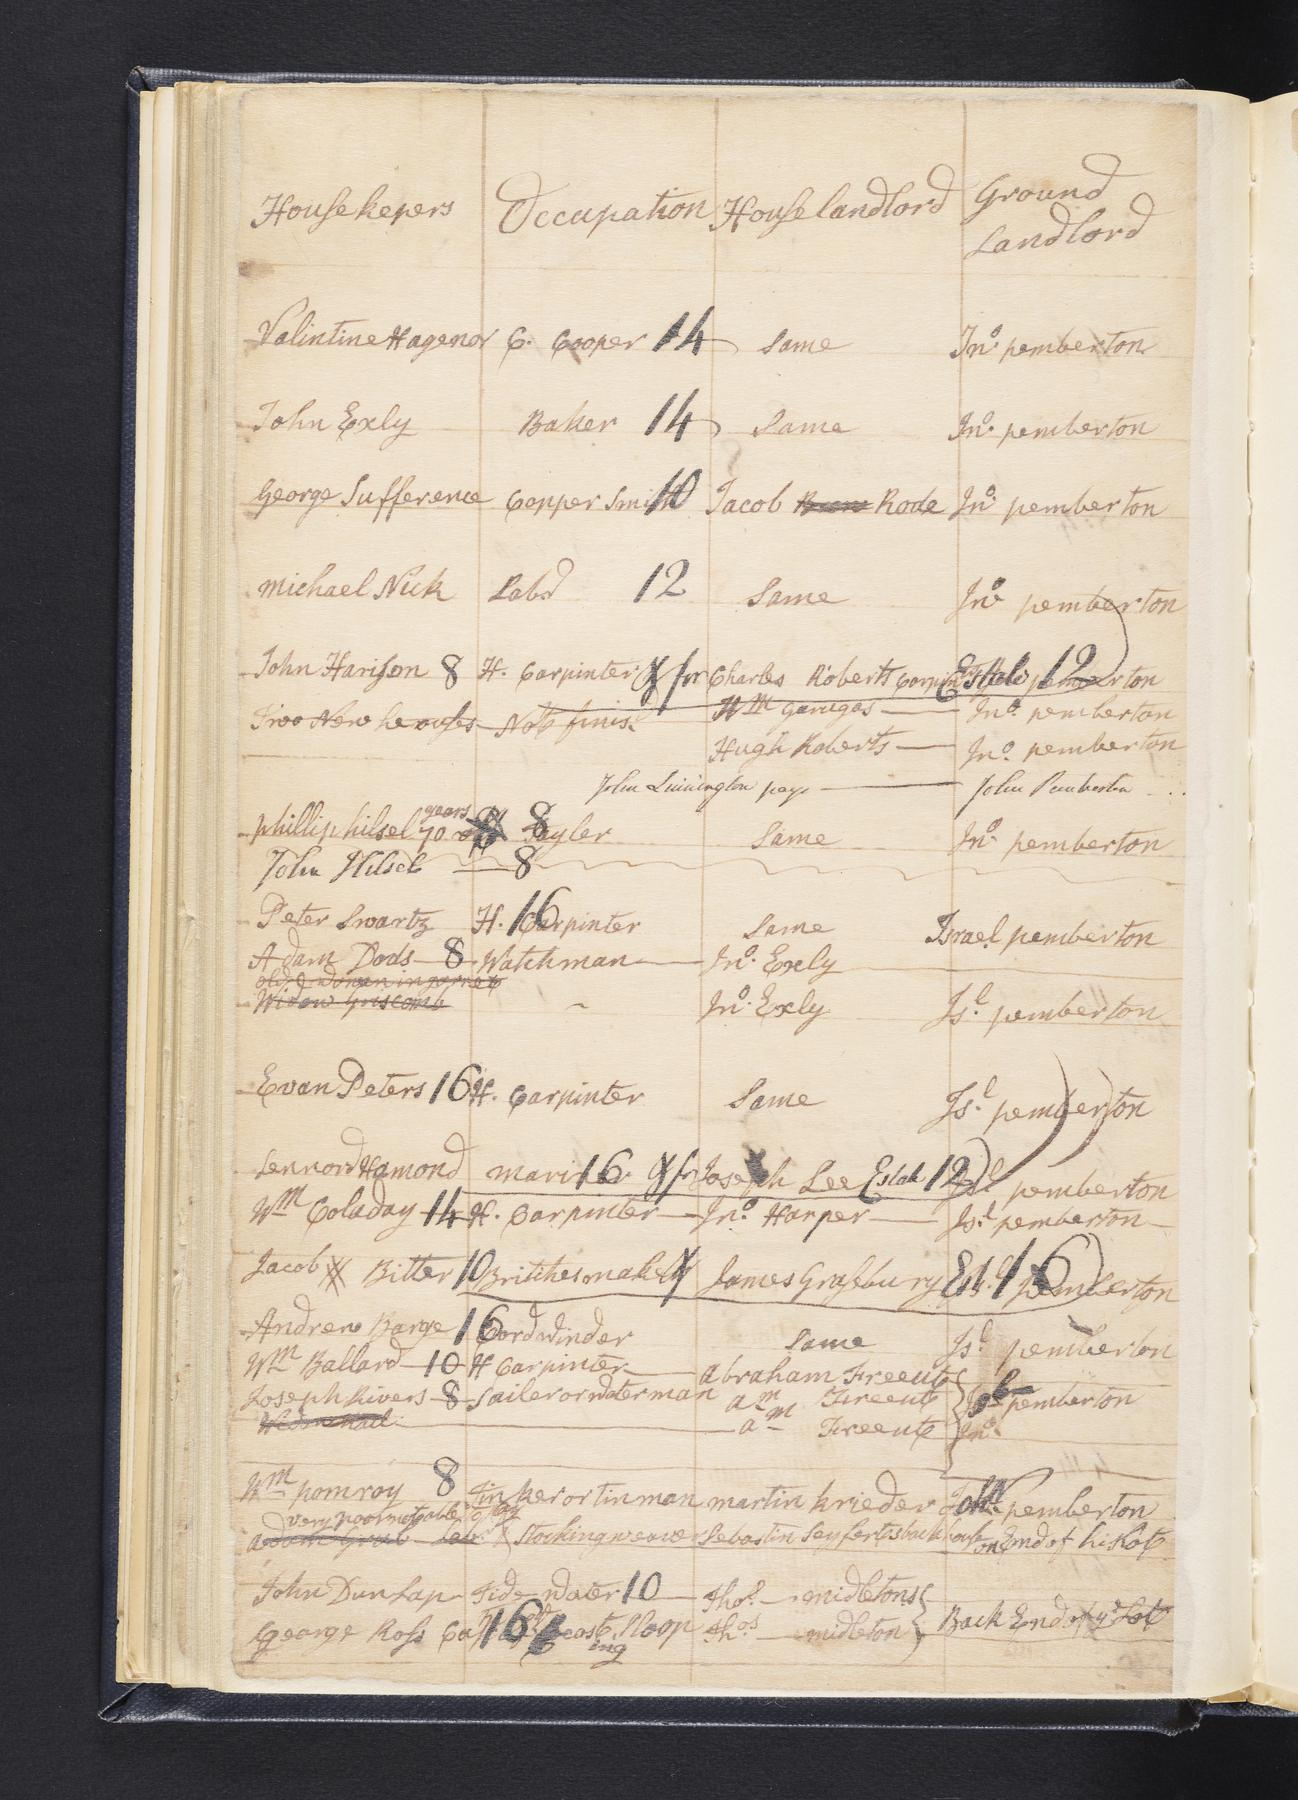 Housekepers Occupation Houselandlord Ground Landlord
Valintine Hagenor C. Cooper 14 Same Jno. pemberton
John Exly Baker 14 Same Jno. pemberton
George Sufference Copper Smith 10 Jacob Rode Jno. pemberton
Michael Nick Labr 12 Same Jno. pemberton
John Harison 8 H. Carpinter for Charles Roberts Carpintr Estate 12 pemberton
Two New heouses Not finist Wm garugas Jno. pemberton
Hugh Roberts Jno. pemberton
John Linington pays John Pemberton
phillip hilsel 70 years 8 Tayler Same Jno. pemberton
John Hilsel 8
Peter Swartz H. 16 Carpinter Same Israel pemberton
Adam Dods 8 Watchman Jno. Exly
old woman in garret
Widow Griscomb Jno. Exly Isl. pemberton
Evan Peters 16 H. Carpinter Same Isl. pemberton
Lennord Hamond mariner 16 for Joseph Lee Estate 12 Isl. pemberton
Wm Coladay 14 H. Carpinter Jno. Harper Isl. pemberton
Jacob Bitter 10 Britchesmaker James Grafsbury Est. 16 pemberton
Andrew Barge 16 Cordwinder Same Isl. pemberton
Wm Ballard 10 H Carpinter Abraham Treeut
Joseph Rivers 8 Sailer or Waterman am Treeut pemberton
am Treeut Jno.
Wm pomroy 8 Tinker or tinman martin krieder John pemberton
very poor not able to pay
adam Grub Labr Stocking weaver Sebastin Seyferts back house on End of his Lot
John Dunlap Tide Water 10 Thos. midletons
George Ross Capt. 16 of Coasting Sloop Thos midleton Back End of ye Lot